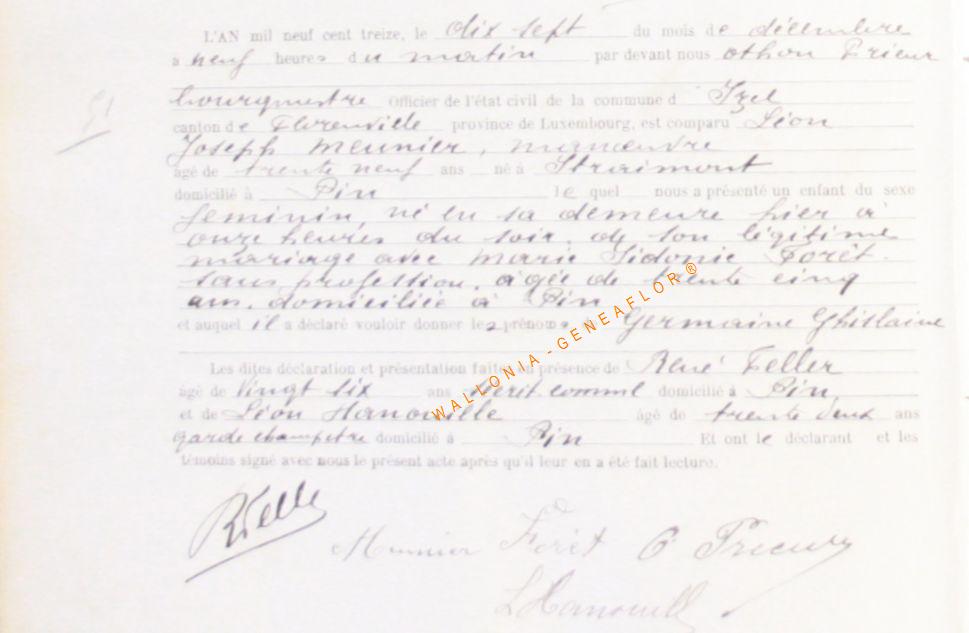 L'AN mil neuf cent treize, le dix sept du mois de décembre
à neuf heures du matin par devant nous Othon Prieur
bourgmestre Officier de l'état civil de la commune d Izel
canton de Florenville province de Luxembourg, est comparu Léon
Joseph Meunier, manœuvre
âgé de trente neuf ans né à Straimont
domicilié à Pin le quel nous a présenté un enfant du sexe
feminin, né en sa demeure hier à
onze heures du soir, de son légitime
mariage avec Marie Sidonie Forêt.
sans profession, âgée de trente cinq
ans, domiciliée à Pin
et auquel il a déclaré vouloir donner les prénoms de Germaine Ghislaine
Les dites déclaration et présentation faites en présence de René Feller
âgé de Vingt six ans comml domicilié à Pin
et de Léon Hanouille âgé de trente deux ans
garde champetre domicilié à Pin Et ont le déclarant et les
témoins signé avec nous le présent acte après qu'il leur en a été fait lecture.
RFelle
Meunier Forêt O Prieur
LHanouill
WALLONIA - GENEAFLOR ®